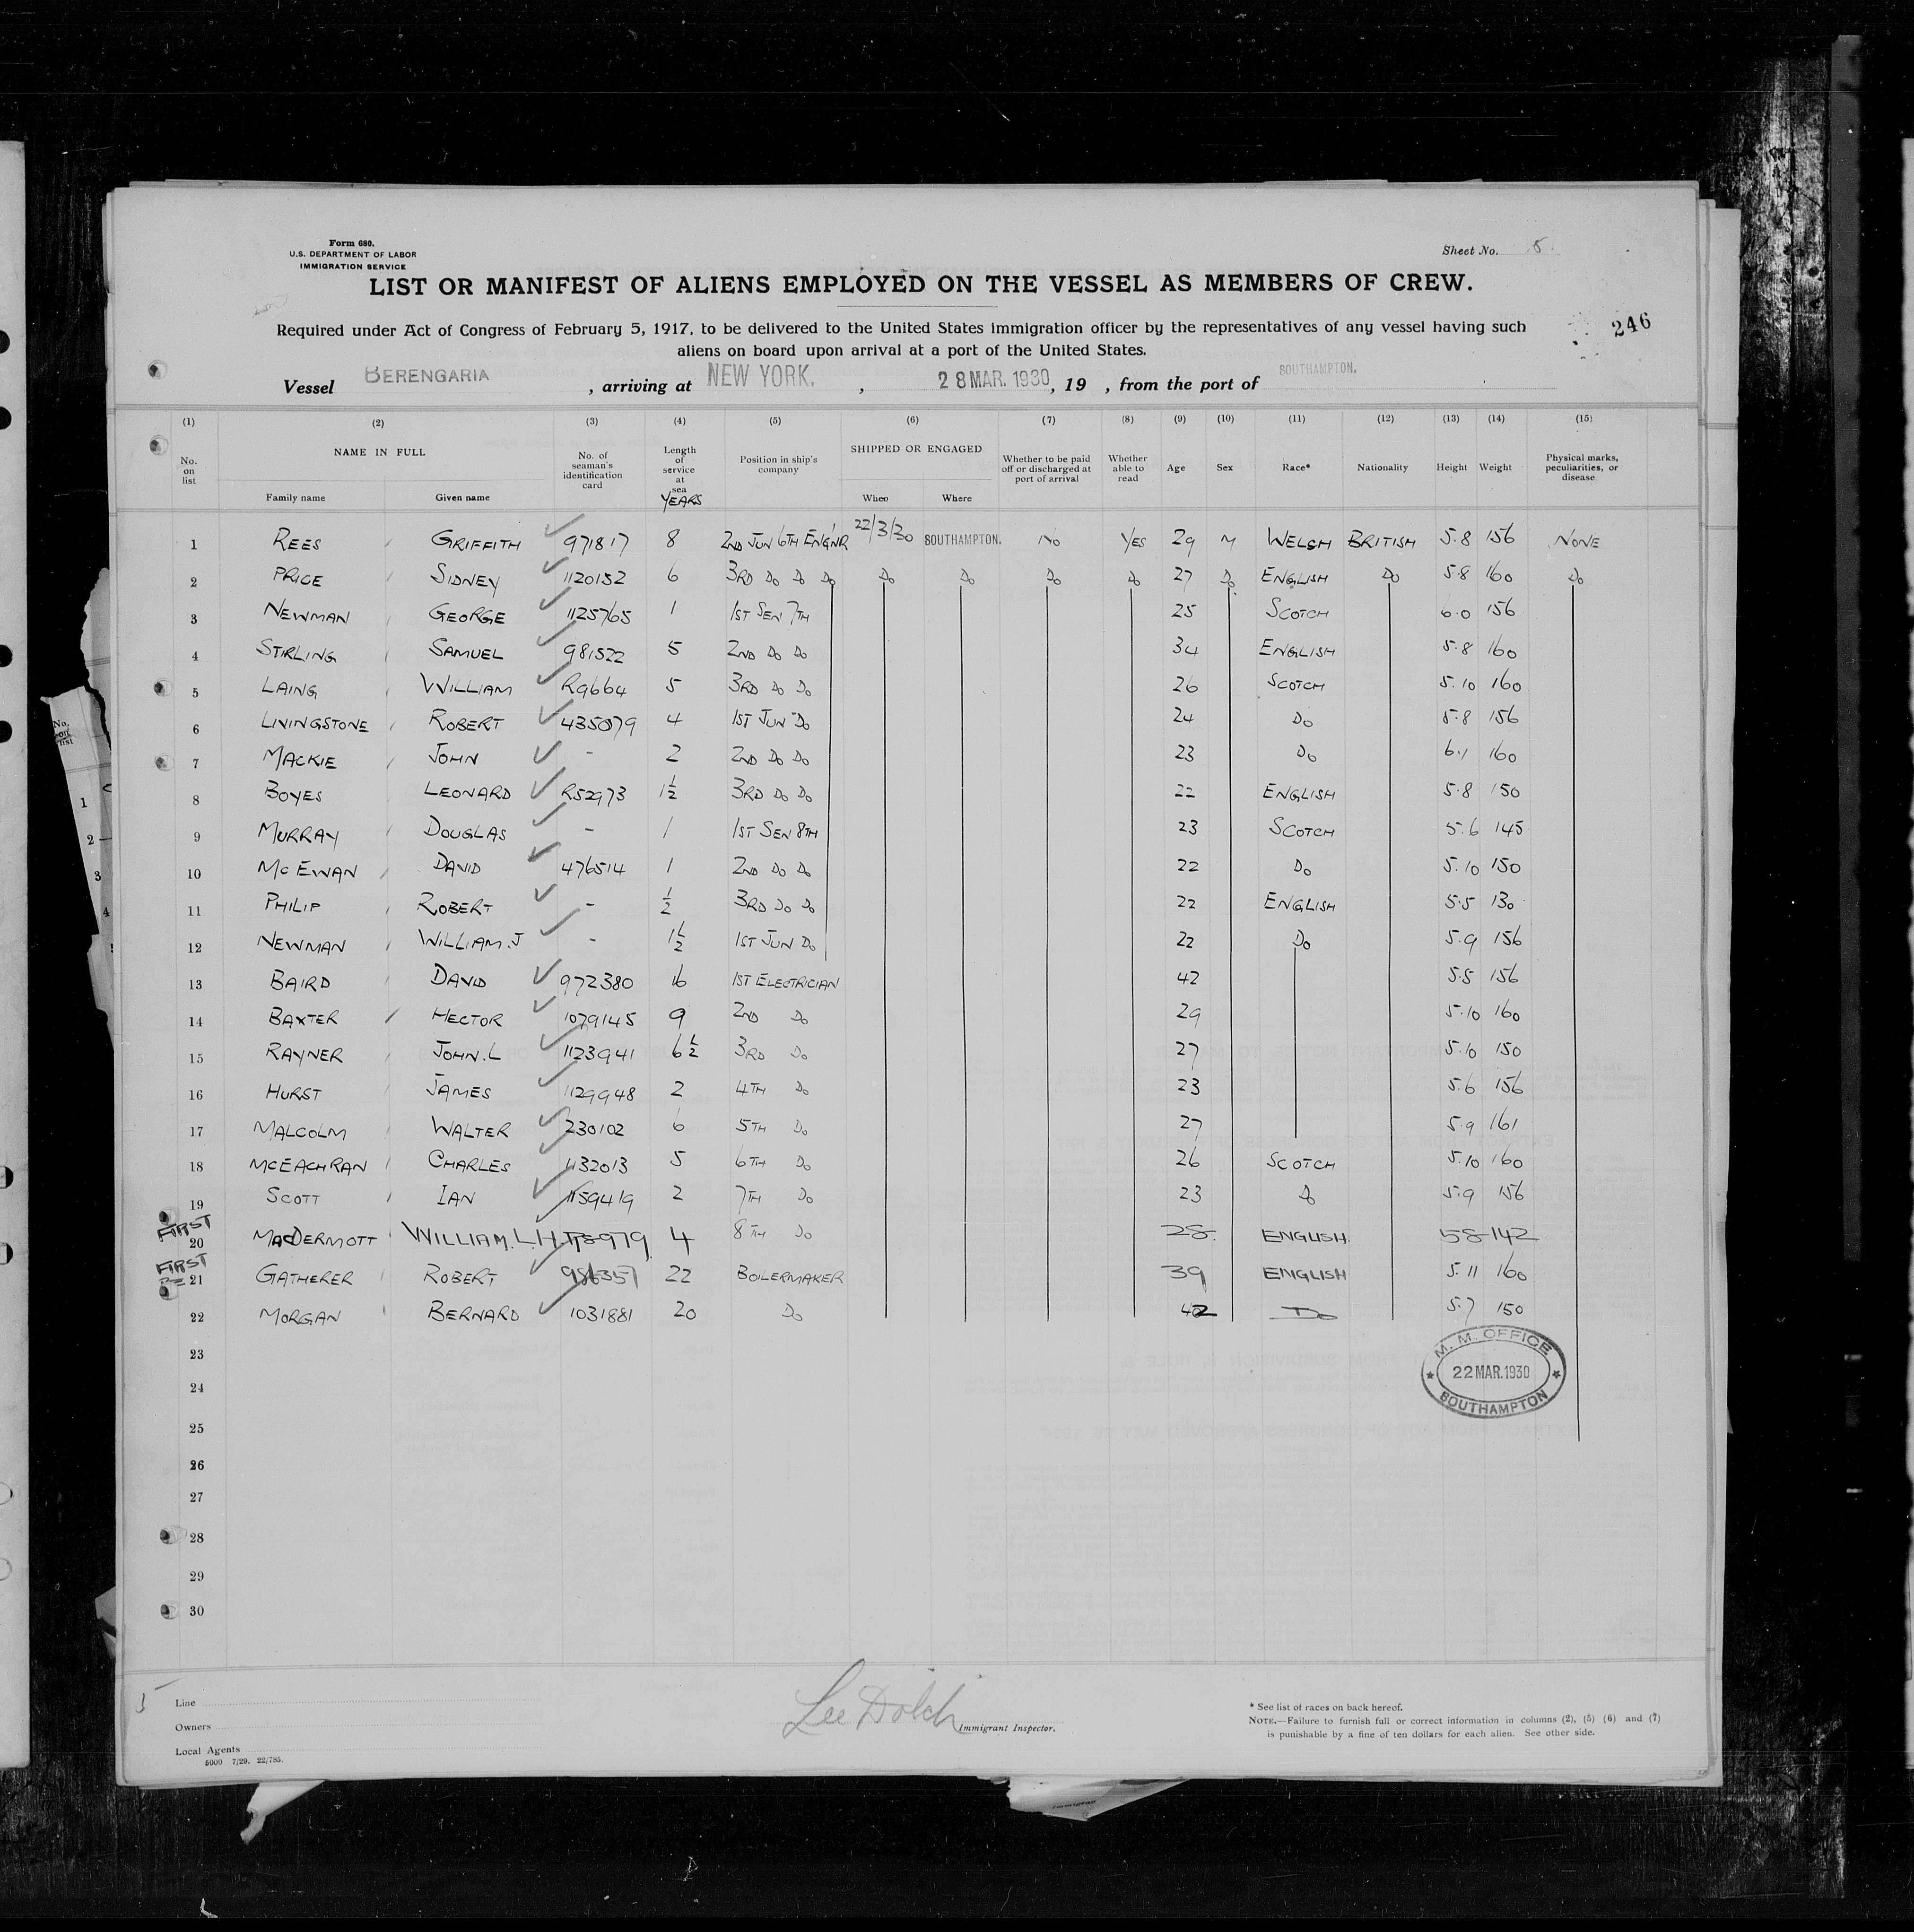 Form 680.
U.S. DEPARTMENT OF LABOR
IMMIGRATION SERVICE
Sheet No. 5
LIST OR MANIFEST OF ALIENS EMPLOYED ON THE VESSEL AS MEMBERS OF CREW.
Required under Act of Congress of February 5, 1917, to be delivered to the United States immigration officer by the representatives of any vessel having such
aliens on board upon arrival at a port of the United States.
246
Vessel BERENGARIA, arriving at NEW YORK., 28 MAR. 1930, 19 , from the port of SOUTHAMPTON.
(1) (2) (3) (4) (5) (6) (7) (8) (9) (10) (11) (12) (13) (14) (15)
No. on list NAME IN FULL Family name Given name No. of seaman's identification card Length of service at sea YEARS Position in ship's company SHIPPED OR ENGAGED When Where Whether to be paid off or discharged at port of arrival Whether able to read Age Sex Race* Nationality Height Weight Physical marks, peculiarities, or disease
1 REES GRIFFITH 971817 8 2ND JUN 6TH ENGNR 22/3/30 SOUTHAMPTON. NO YES 29 M WELSH BRITISH 5.8 156 NONE
2 PRICE SIDNEY 1120152 6 3RD DO DO DO DO DO DO DO 27 DO ENGLISH DO 5.8 160 DO
3 NEWMAN GEORGE 1125765 1 1ST SEN 7TH 25 SCOTCH 6.0 156
4 STIRLING SAMUEL 981522 5 2ND DO DO 34 ENGLISH 5.8 160
5 LAING WILLIAM R9664 5 3RD DO DO 26 SCOTCH 5.10 160
6 LIVINGSTONE ROBERT 435079 4 1ST JUN DO 24 DO 5.8 156
7 MACKIE JOHN - 2 2ND DO DO 23 DO 6.1 160
8 BOYES LEONARD R52973 1½ 3RD DO DO 22 ENGLISH 5.8 150
9 MURRAY DOUGLAS - 1 1ST SEN 8TH 23 SCOTCH 5.6 145
10 MCEWAN DAVID 476514 1 2ND DO DO 22 DO 5.10 150
11 PHILIP ROBERT - ½ 3RD DO DO 22 ENGLISH 5.5 130
12 NEWMAN WILLIAM.J - 1½ 1ST JUN DO 22 DO 5.9 156
13 BAIRD DAVID 972380 16 1ST ELECTRICIAN 42 5.5 156
14 BAXTER HECTOR 1079145 9 2ND DO 29 5.10 160
15 RAYNER JOHN.L 1123941 6½ 3RD DO 27 5.10 150
16 HURST JAMES 1129948 2 4TH DO 23 5.6 156
17 MALCOLM WALTER 230102 6 5TH DO 27 5.9 161
18 MCEACHRAN CHARLES 432013 5 6TH DO 26 SCOTCH 5.10 160
19 SCOTT IAN 1159419 2 7TH DO 23 DO 5.9 156
FIRST
20 MACDERMOTT WILLIAM.L.H. 4 8TH DO 28 ENGLISH. 58 142
FIRST
21 GATHERER ROBERT 986357 22 BOILERMAKER 39 ENGLISH 5.11 160
22 MORGAN BERNARD 1031881 20 DO 42 DO 5.7 150
23
24
25
26
27
28
29
30
M. M. OFFICE
22 MAR. 1930
SOUTHAMPTON
5
Line
Owners
Local Agents
5000 7/29. 22/785.
Lee Dolch Immigrant Inspector.
* See list of races on back hereof.
NOTE.—Failure to furnish full or correct information in columns (2), (5) (6) and (7)
is punishable by a fine of ten dollars for each alien. See other side.
No. on list
1
2
3
4